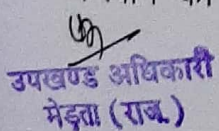 उपखण्ड अधिकारी
मेड़ता (राज.)